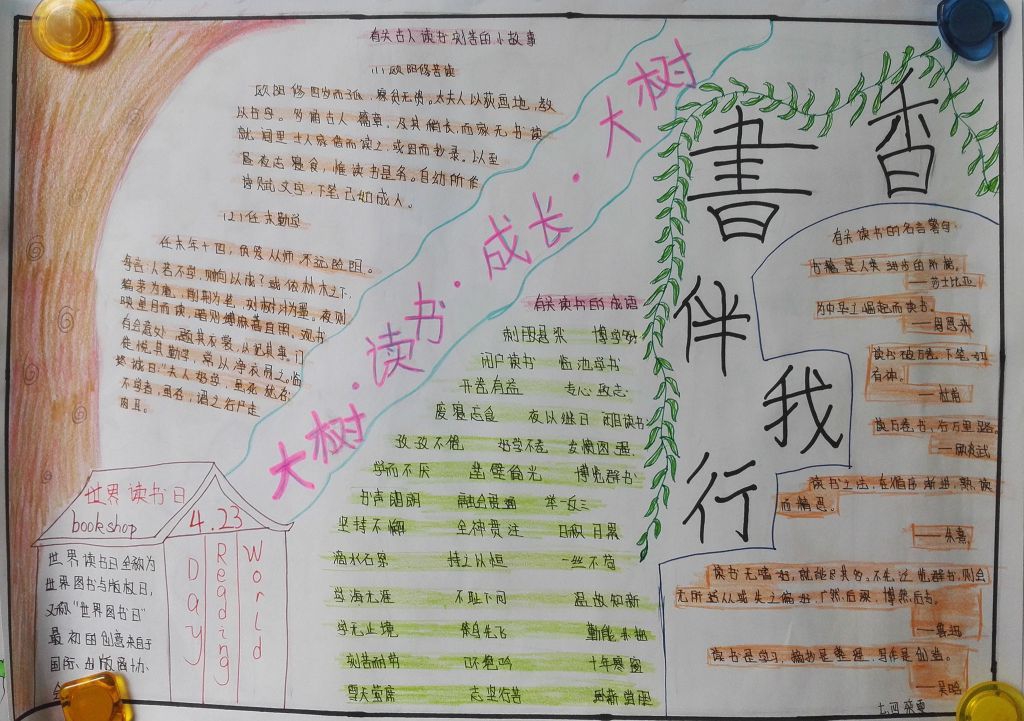 有关古人读书刻苦的小故事
(1)欧阳修苦读
欧阳修四岁而孤，家贫无资。太夫人以荻画地，教
以书字。多诵古人篇章，及其稍长，而家无书读
就闾里士人家借而读之，或因而抄录。以至
昼夜忘寝食，惟读书是务。自幼所作
诗赋文字，下笔已如成人。
(2)任末勤学
任末年十四，负笈从师 不远险阻。
每言：人若不学，则何以成？或依林木之下，
编茅为庵，削荆为笔，刻树汁为墨。夜则
映星月而读，暗则缚麻蒿自照。观书
有会意处，题其衣裳，以记其事。门
徒悦其勤学，常以净衣易之。临
终诫曰："夫人好学，虽死犹存；
不学者，虽存，谓之行尸走
肉耳。
大树·读书·成长·大树
書香伴我行
有关读书的成语
刺股悬梁 博学多才
闭户读书 临池学书
开卷有益 专心致志
废寝忘食 夜以继日 闭目读书
孜孜不倦 好学不卷 发愤图强
学而不厌 凿壁偷光 博览群书
书声朗朗 融会贯通 举一反三
坚持不懈 全神贯注 日积月累
滴水石穿 持之以恒 一丝不苟
学海无涯 不耻下问 温故知新
学无止境 笨鸟先飞 勤能补拙
刻苦耐劳 口不绝吟 十年寒窗
雪天萤席 志坚行苦
有关读书的名言警句
书籍是人类进步的阶梯。
——莎士比亚
为中华之崛起而读书。
——周恩来
读书破万卷，下笔如
有神。
——杜甫
读万卷书，行万里路。
——顾炎武
读书之法，在循序渐进，熟读
而精思。
——朱熹
——鲁迅
读书是学习，摘抄是整理，写作是创造。
——吴晗
世界读书日
bookshop
4.23
World
Reading
Day
世界读书日全称为
世界图书与版权日，
又称"世界图书日"
最初的创意来自于
国际出版商协
会